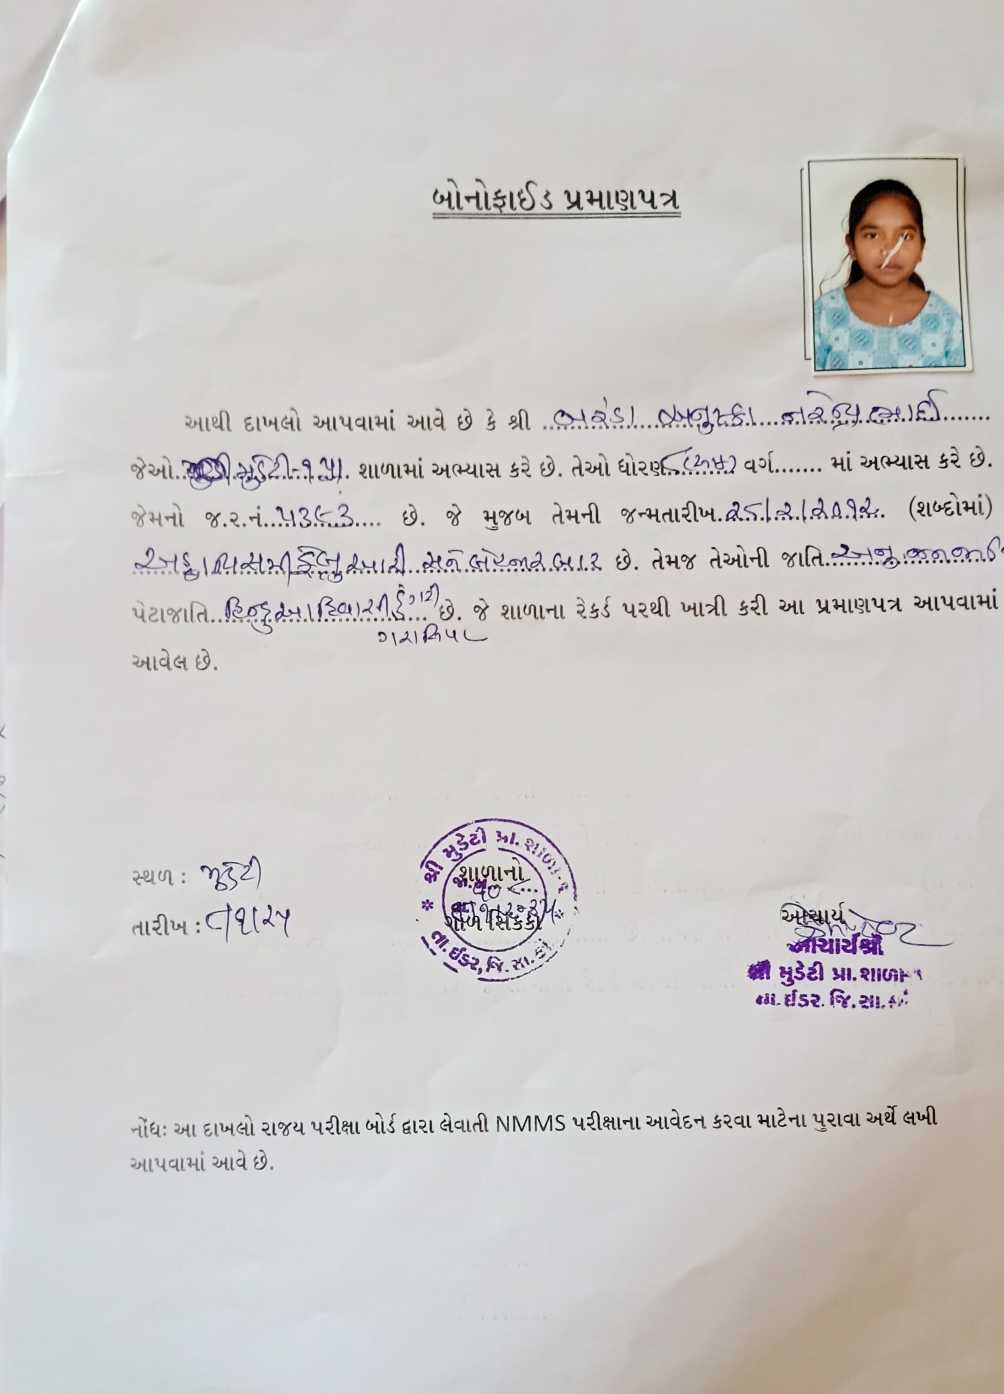 બોનોફાઈડ પ્રમાણપત્ર
આથી દાખલો આપવામાં આવે છે કે શ્રી બરંડા અનુષ્કા નરેન્દ્રભાઈ
જેઓ મુડેટી-૧ પ્રા. શાળામાં અભ્યાસ કરે છે. તેઓ ધોરણ વર્ગ....... માં અભ્યાસ કરે છે.
જેમનો જ.ર.નં. ૫૩૯૩ છે. જે મુજબ તેમની જન્મતારીખ. ૨૮/૨/૨૦૧૨ (શબ્દોમાં)
અઠ્ઠાવીસમી ફેબ્રુઆરી સને બે હજાર બાર છે. તેમજ તેઓની જાતિ અનુ જનજાતિ
પેટાજાતિ હિન્દુ આદિવાસી ડુંગરી છે. જે શાળાના રેકર્ડ પરથી ખાત્રી કરી આ પ્રમાણપત્ર આપવામાં
ગરાસિયા
આવેલ છે.
સ્થળ : મુડેટી
તારીખ :
શ્રી મુડેટી પ્રા. શાળા-૧
શાળાનો
જા.નં.
ગોળ સિક્કો
તા. ઈડર, જિ. સા. કાં
આચાર્ય
આચાર્યશ્રી
શ્રી મુડેટી પ્રા. શાળા-૧
તા. ઈડર. જિ. સા. કાં
નોંધ: આ દાખલો રાજય પરીક્ષા બોર્ડ દ્વારા લેવાતી NMMS પરીક્ષાના આવેદન કરવા માટેના પુરાવા અર્થે લખી
આપવામાં આવે છે.